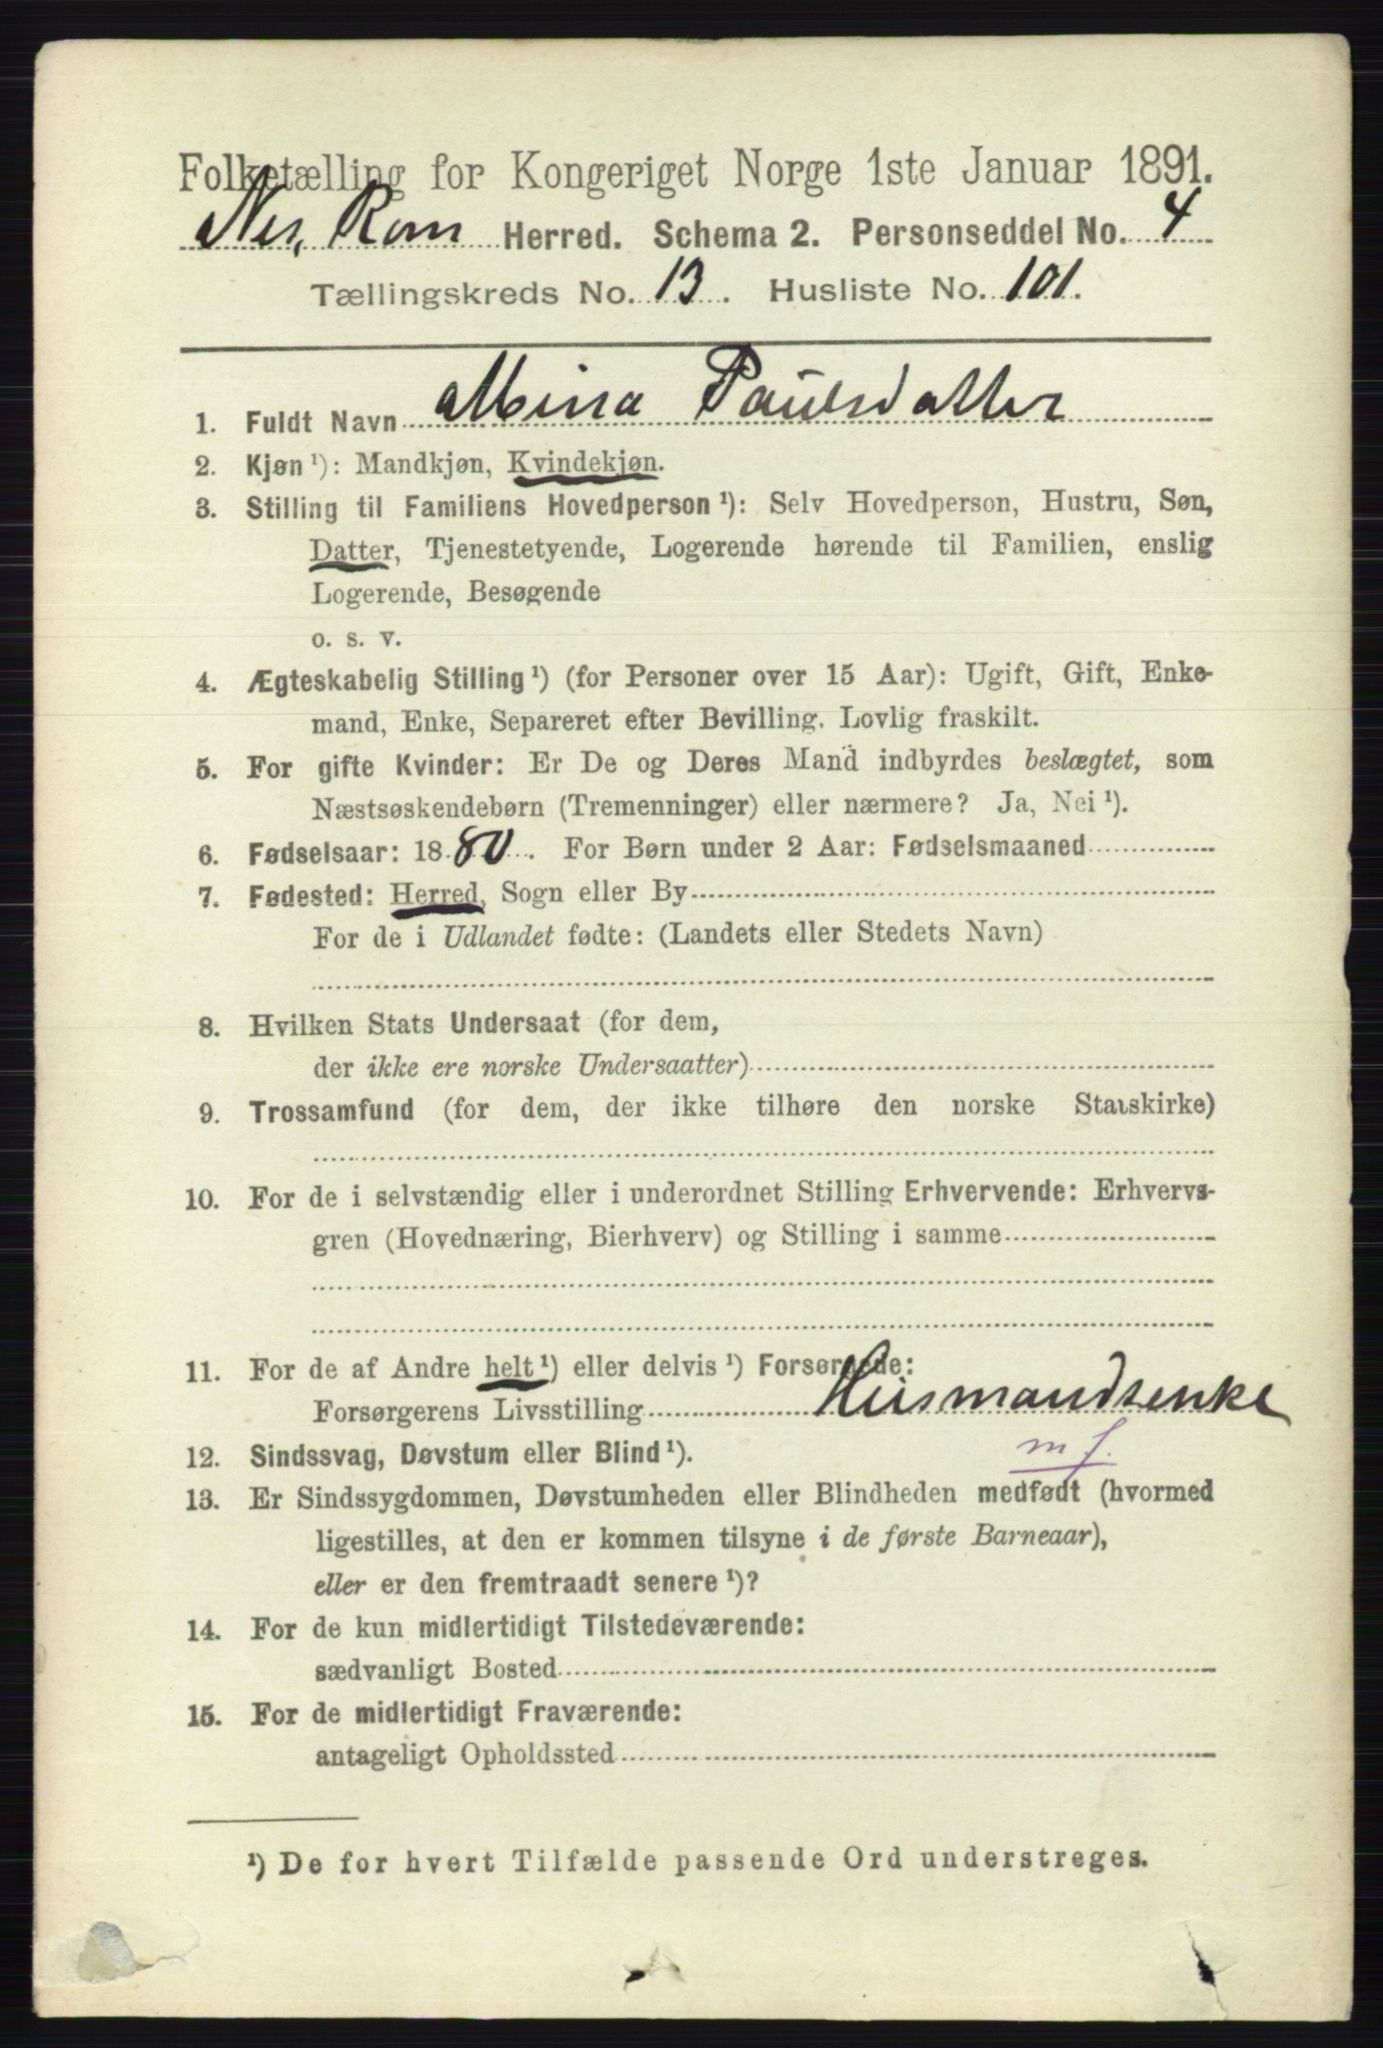 Folketælling for Kongeriget Norge 1ste Januar 1891.
Nes, Rom Herred. Schema 2. Personseddel No. 4
Tællingskreds No. 13. Husliste No. 101.
1. Fuldt Navn Mina Paulsdatter
2. Kjøn ¹): Mandkjøn, Kvindekjøn.
3. Stilling til Familiens Hovedperson ¹): Selv Hovedperson, Hustru, Søn,
Datter, Tjenestetyende, Logerende hørende til Familien, enslig
Logerende, Besøgende
o. s. v.
4. Ægteskabelig Stilling ¹) (for Personer over 15 Aar): Ugift, Gift, Enke-
mand, Enke, Separeret efter Bevilling. Lovlig fraskilt.
5. For gifte Kvinder: Er De og Deres Mand indbyrdes beslægtet, som
Næstsøskendebørn (Tremenninger) eller nærmere? Ja, Nei ¹).
6. Fødselsaar: 1880. For Børn under 2 Aar: Fødselsmaaned
7. Fødested: Herred, Sogn eller By
For de i Udlandet fødte: (Landets eller Stedets Navn)
8. Hvilken Stats Undersaat (for dem,
der ikke ere norske Undersaatter)
9. Trossamfund (for dem, der ikke tilhøre den norske Statskirke)
10. For de i selvstændig eller i underordnet Stilling Erhvervende: Erhvervs-
gren (Hovednæring, Bierhverv) og Stilling i samme
11. For de af Andre helt ¹) eller delvis ¹) Forsørgede:
Forsørgerens Livsstilling Husmandsenke
12. Sindssvag, Døvstum eller Blind ¹). m f.
13. Er Sindssygdommen, Døvstumheden eller Blindheden medfødt (hvormed
ligestilles, at den er kommen tilsyne i de første Barneaar),
eller er den fremtraadt senere ¹)?
14. For de kun midlertidigt Tilstedeværende:
sædvanligt Bosted
15. For de midlertidigt Fraværende:
antageligt Opholdssted
¹) De for hvert Tilfælde passende Ord understreges.